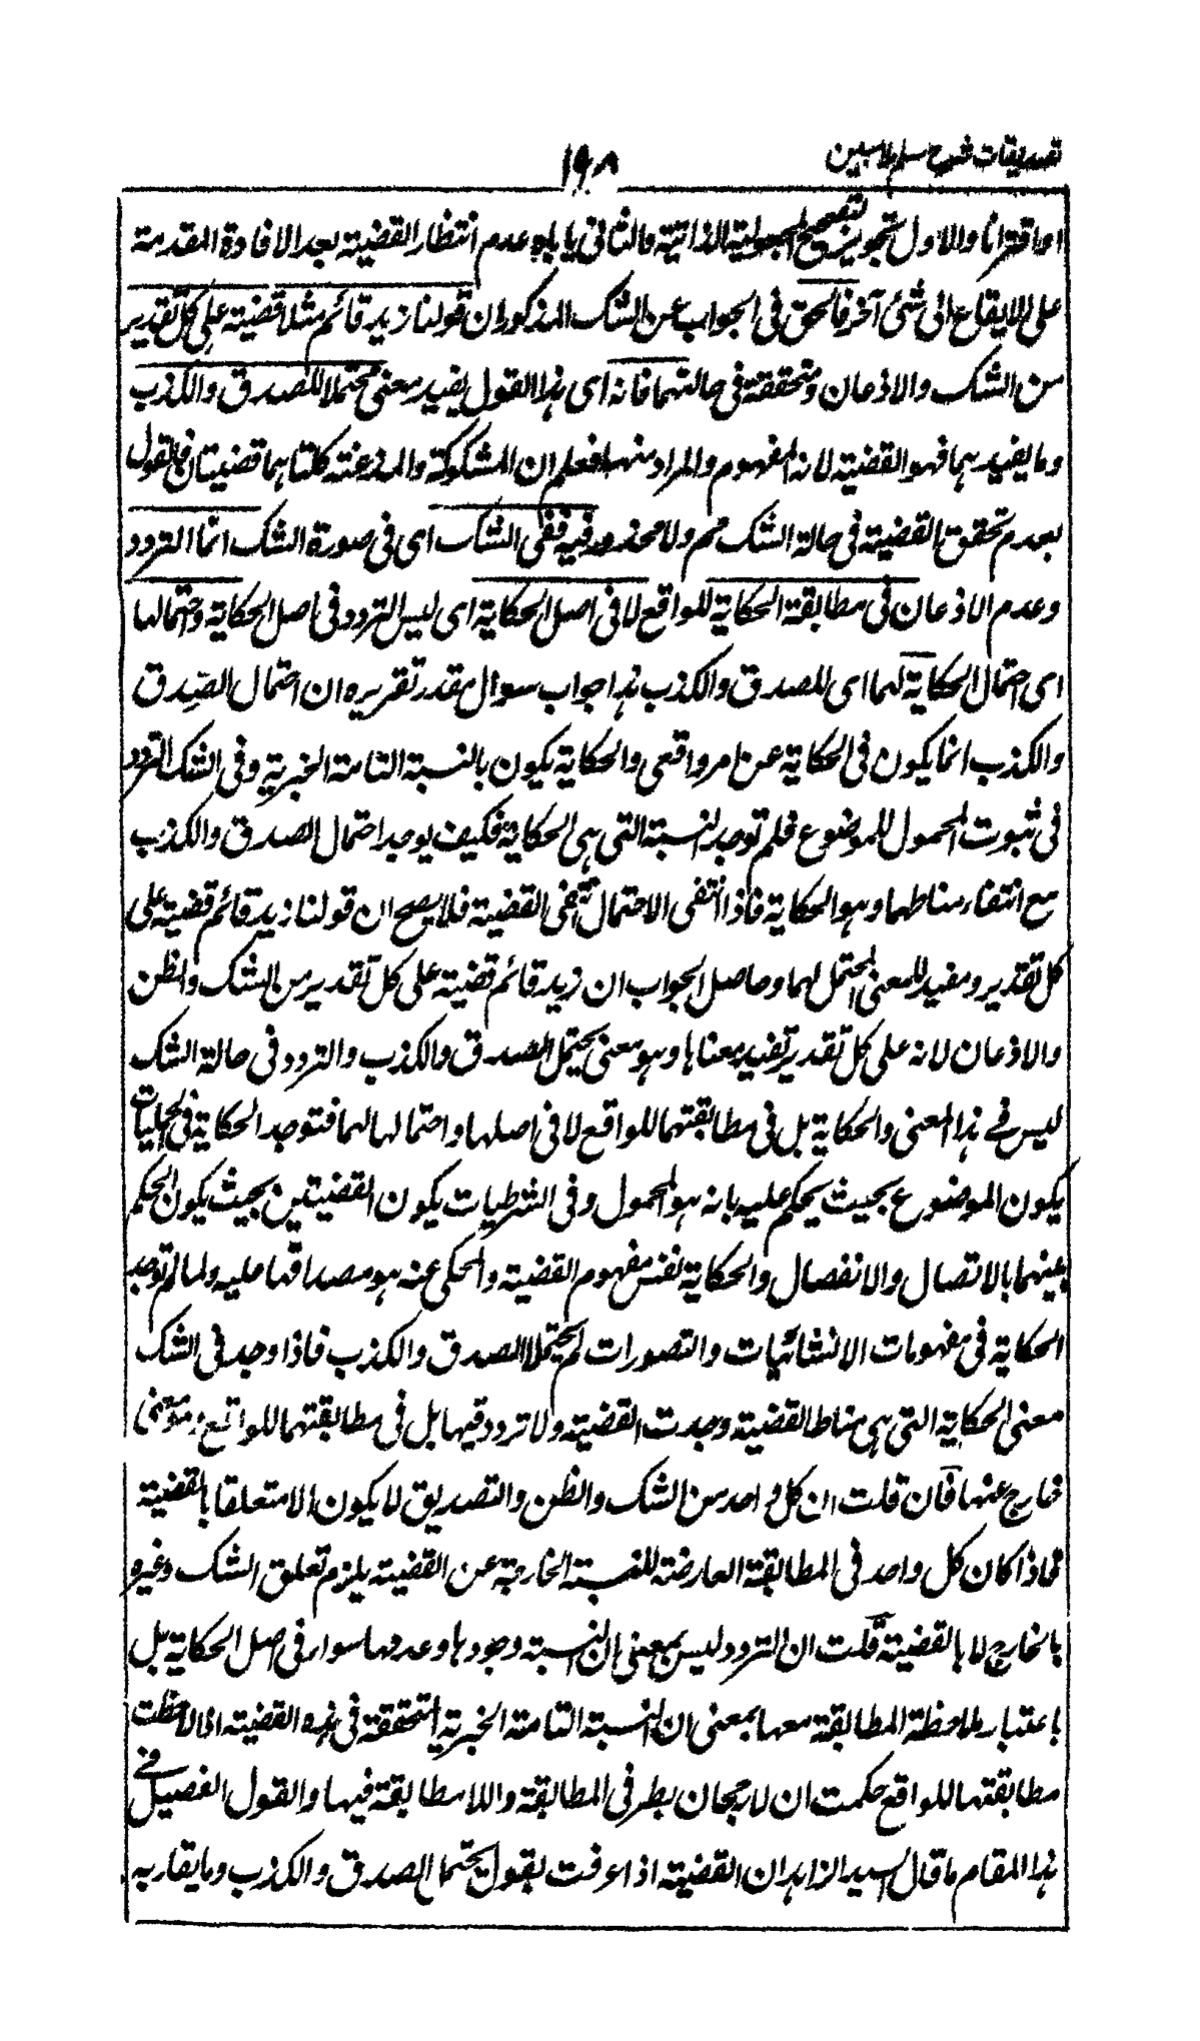 تصديقات شرح سلم ملامبين
١٩٨
اما اقترانا والاول تجويز لتصحيح المجعولية الذاتية والثانى ياباه عدم انتظار القضية بعد الافادة المقدمة
على الايقاع الى شئ آخر فالحق فى الجواب عن الشك المذكور ان قولنا زيد قائم مثلا قضية على كل تقدير
من الشك والاذعان ومتحققة فى حالتهما فانه اى هذا القول يفيد معنى محتملا للصدق والكذب
وما يفيد هما فهو القضية لانه المفهوم والمراد منها فعلم ان المشكوكة والمذعنة كلتاهما قضيتان فالقول
بعدم تحقق القضية فى حالة الشك مم ولا محذور فيه ففى الشك اى فى صورة الشك انما التردد
وعدم الاذعان فى مطابقة الحكاية للواقع لا فى اصل الحكاية اى ليس التردد فى اصل الحكاية واحتمالها
اى احتمال الحكاية لهما اى للصدق والكذب هذا جواب سوال مقدر تقريره ان احتمال الصدق
والكذب انما يكون فى الحكاية عن امر واقعى والحكاية يكون بالنسبة التامة الخبرية وفى الشك التردد
فى ثبوت المحمول للموضوع فلم توجد النسبة التى هى الحكاية فكيف يوجد احتمال الصدق والكذب
مع انتفاء مناطهما وهو الحكاية فاذا انتفى الاحتمال تنتفى القضية فلا يصح ان قولنا زيد قائم قضية على
كل تقدير ومفيد للمعنى المحتمل لهما وحاصل الجواب ان زيد قائم قضية على كل تقدير من الشك والظن
والاذعان لانه على كل تقدير تفيد معناها وهو معنى يحتمل الصدق والكذب والتردد فى حالة الشك
ليس فى هذا المعنى والحكاية بل فى مطابقتهما للواقع لا فى اصلها واحتمالها لهما فتوجد الحكاية فى الحمليات
يكون الموضوع بحيث يحكم عليه بانه هو المحمول وفى الشرطيات يكون القضيتين بحيث يكون الحكم
بينهما بالاتصال والانفصال والحكاية نفس مفهوم القضية والمحكى عنه هو مصداقها عليه ولما لم توجد
الحكاية فى مفهومات الانشائيات والتصورات لم يحتملا الصدق والكذب فاذا وجد فى الشك
معنى الحكاية التى هى مناط القضية وجدت القضية ولا تردد فيها بل فى مطابقتهما للواقع وهو معنى
خارج عنها فان قلت ان كل واحد من الشك والظن والتصديق لا يكون الا متعلقا بالقضية
فماذا كان كل واحد فى المطابقة العارضة للنسبة الخارجة عن القضية يلزم تعلق الشك وغيره
بالخارج لا بالقضية قلت ان التردد ليس بمعنى ان النسبة وجودها وعدمها سواء فى اصل الحكاية بل
باعتبار ملاحظة المطابقة معها بمعنى ان النسبة التامة الخبرية المتحققة فى هذه القضية اذا لاحظت
مطابقتها للواقع حكمت ان لا رجحان بطرفى المطابقة واللا مطابقة فيها والقول الفصيل فى
هذا المقام ما قال السيد الزاهد ان القضية اذا عرفت بقول يحتمل الصدق والكذب وما يقاربه